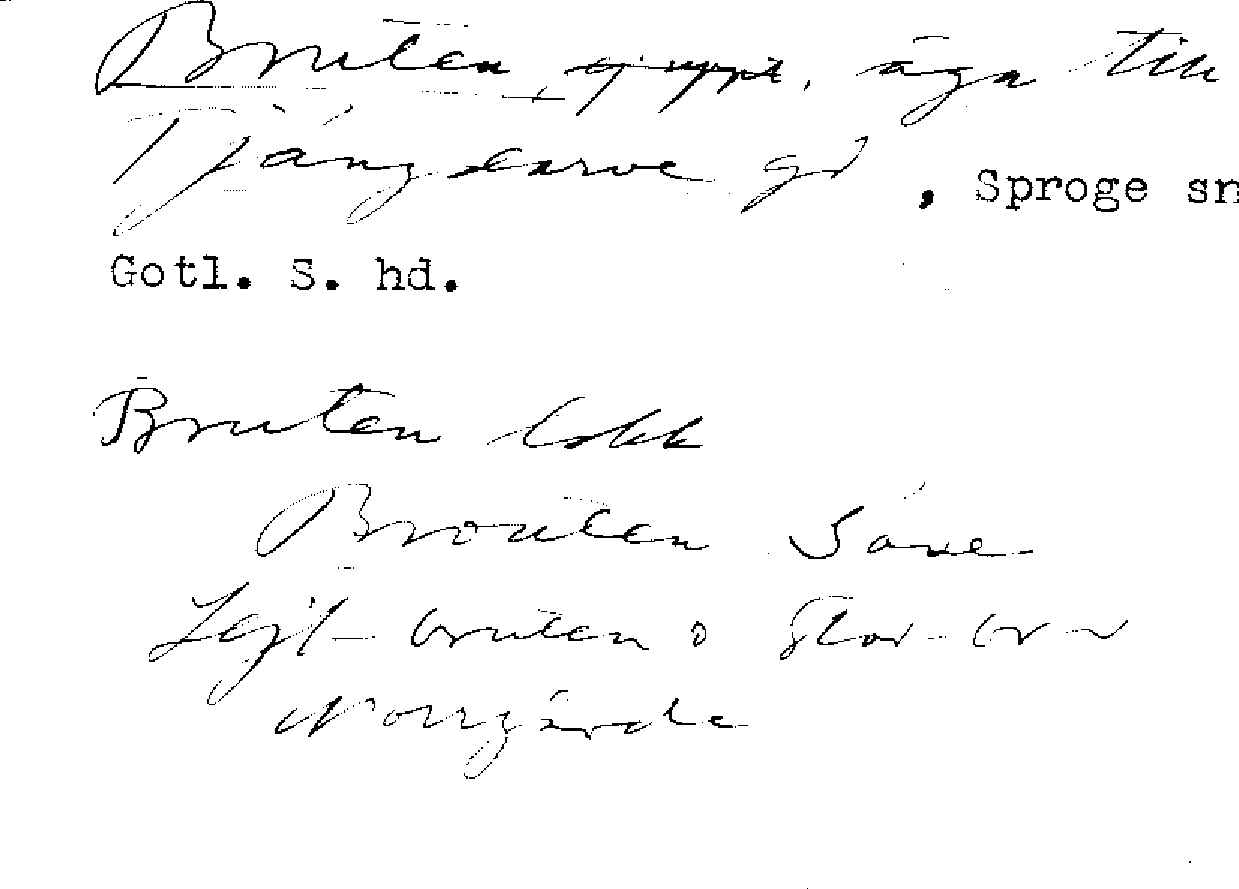 Bruten, ej uppt, äga till
Tjängdarve gd, Sproge sn
Gotl. S. hd.
Bruten lokk
Brouten Säve
Lejt-bruten o Stor-br~
Norrgärde